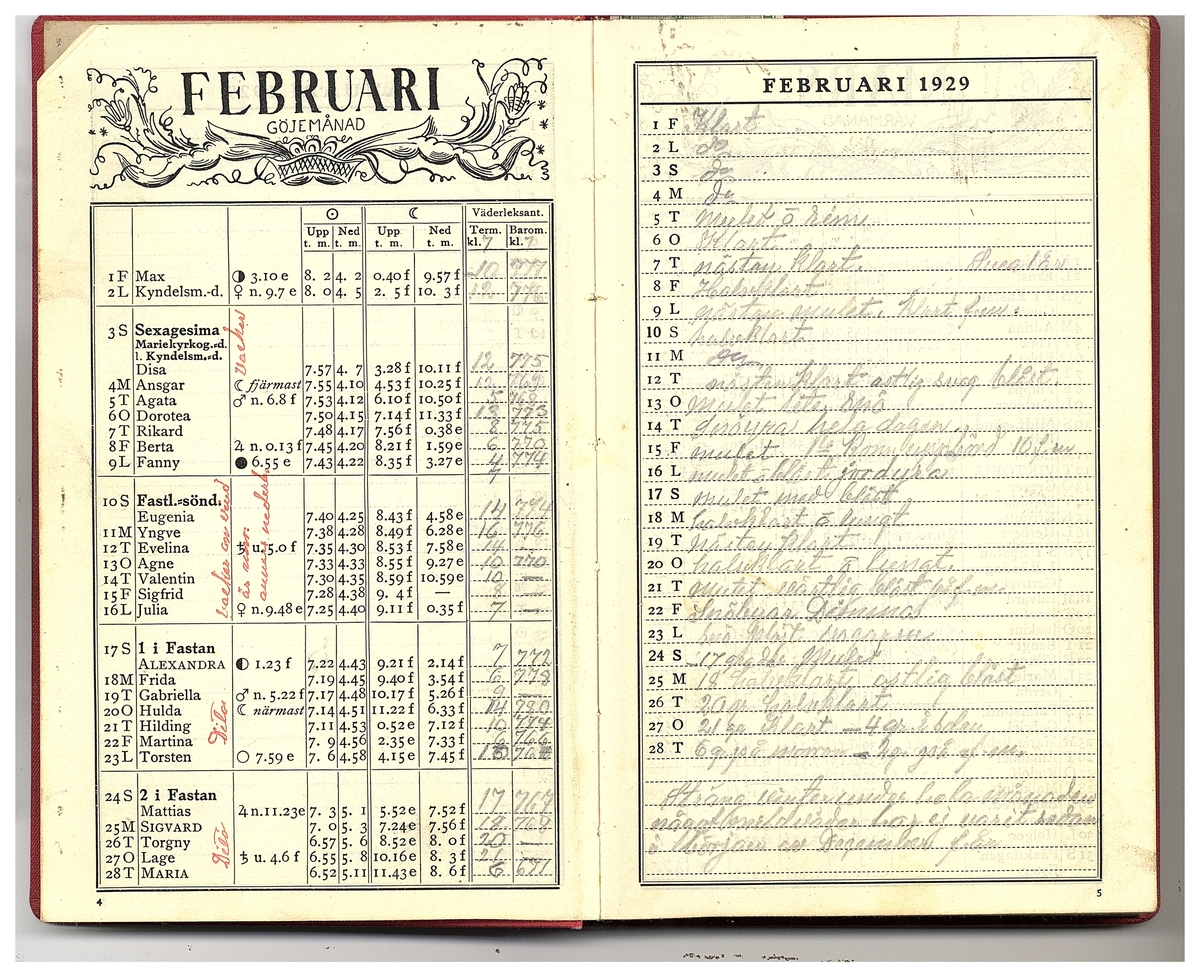 FEBRUARI
GÖJEMÅNAD
☉ ☾ Väderleksant.
Upp t. m. Ned t. m. Upp t. m. Ned t. m. Term. kl. 7 Barom. kl. 7
1 F Max ◑ 3.10 e 8. 2 4. 2 0.40 f 9.57 f 10 777
2 L Kyndelsm.-d. ♀ n. 9.7 e 8. 0 4. 5 2. 5 f 10. 3 f 12 776
3 S Sexagesima
Mariekyrkog.-d.
l. Kyndelsm.-d.
Disa 7.57 4. 7 3.28 f 10.11 f 12 775
4 M Ansgar ☾ fjärmast 7.55 4.10 4.53 f 10.25 f 12 768
5 T Agata ♂ n. 6.8 f 7.53 4.12 6.10 f 10.50 f 5 768
6 O Dorotea 7.50 4.15 7.14 f 11.33 f 13 773
7 T Rikard 7.48 4.17 7.56 f 0.38 e 8 775
8 F Berta ♃ n. 0.13 f 7.45 4.20 8.21 f 1.59 e 6 770
9 L Fanny ● 6.55 e 7.43 4.22 8.35 f 3.27 e 4 774
7
Vacker
10 S Fastl.-sönd.
Eugenia 7.40 4.25 8.43 f 4.58 e 14 774
11 M Yngve 7.38 4.28 8.49 f 6.28 e 16 776
12 T Evelina ♄ u. 5.0 f 7.35 4.30 8.53 f 7.58 e 14 —
13 O Agne 7.33 4.33 8.55 f 9.27 e 10 770
14 T Valentin 7.30 4.35 8.59 f 10.59 e 10 —
15 F Sigfrid 7.28 4.38 9. 4 f — 8 —
16 L Julia ♀ n. 9.48 e 7.25 4.40 9.11 f 0.35 f 7 —
vacker om vind
är norr
annars nederb.
17 S 1 i Fastan
ALEXANDRA ◐ 1.23 f 7.22 4.43 9.21 f 2.14 f 7 772
18 M Frida 7.19 4.45 9.40 f 3.54 f 6 778
19 T Gabriella ♂ n. 5.22 f 7.17 4.48 10.17 f 5.26 f 9 —
20 O Hulda ☾ närmast 7.14 4.51 11.22 f 6.33 f 14 780
21 T Hilding 7.11 4.53 0.52 e 7.12 f 10 774
22 F Martina 7. 9 4.56 2.35 e 7.33 f 6 766
23 L Torsten ○ 7.59 e 7. 6 4.58 4.15 e 7.45 f 13
Dito
24 S 2 i Fastan
Mattias ♃ n. 11.23 e 7. 3 5. 1 5.52 e 7.52 f 17 767
25 M SIGVARD 7. 0 5. 3 7.24 e 7.56 f 18 768
26 T Torgny 6.57 5. 6 8.52 e 8. 0 f 20 —
27 O Lage ♄ u. 4.6 f 6.55 5. 8 10.16 e 8. 3 f 21 —
28 T MARIA 6.52 5.11 11.43 e 8. 6 f 6 671
Dito
4
FEBRUARI 1929
1 F Klart
2 L do
3 S do
4 M do
5 T Mulet å
6 O Klart
7 T nästan klart.
8 F Halvklart
9 L nästan mulet. klart f.m.
10 S halvklart
11 M do
12 T nästan klart ostlig svag blåst.
13 O Mulet lite snö
14 T Snöyra hela dagen
15 F mulet 10 f.m
16 L mulet blåst jordyra
17 S mulet med blåst
18 M halvklart å lungt
19 T Nästan klart
20 O halvklart å lungt.
21 T Mulet västlig blåst på f.m.
22 F Snöbyar
23 L Snö blåst
24 S 17 gr. Mulet
25 M 18 halvklart, ostlig blåst
26 T 20 gr. halvklart
27 O 21 gr Klart — 4 gr.
28 T 6 gr. på morron — 2 gr på e.m.
Sträng vinter under hela månaden
något har ej varit sedan
i början av December f. år
5